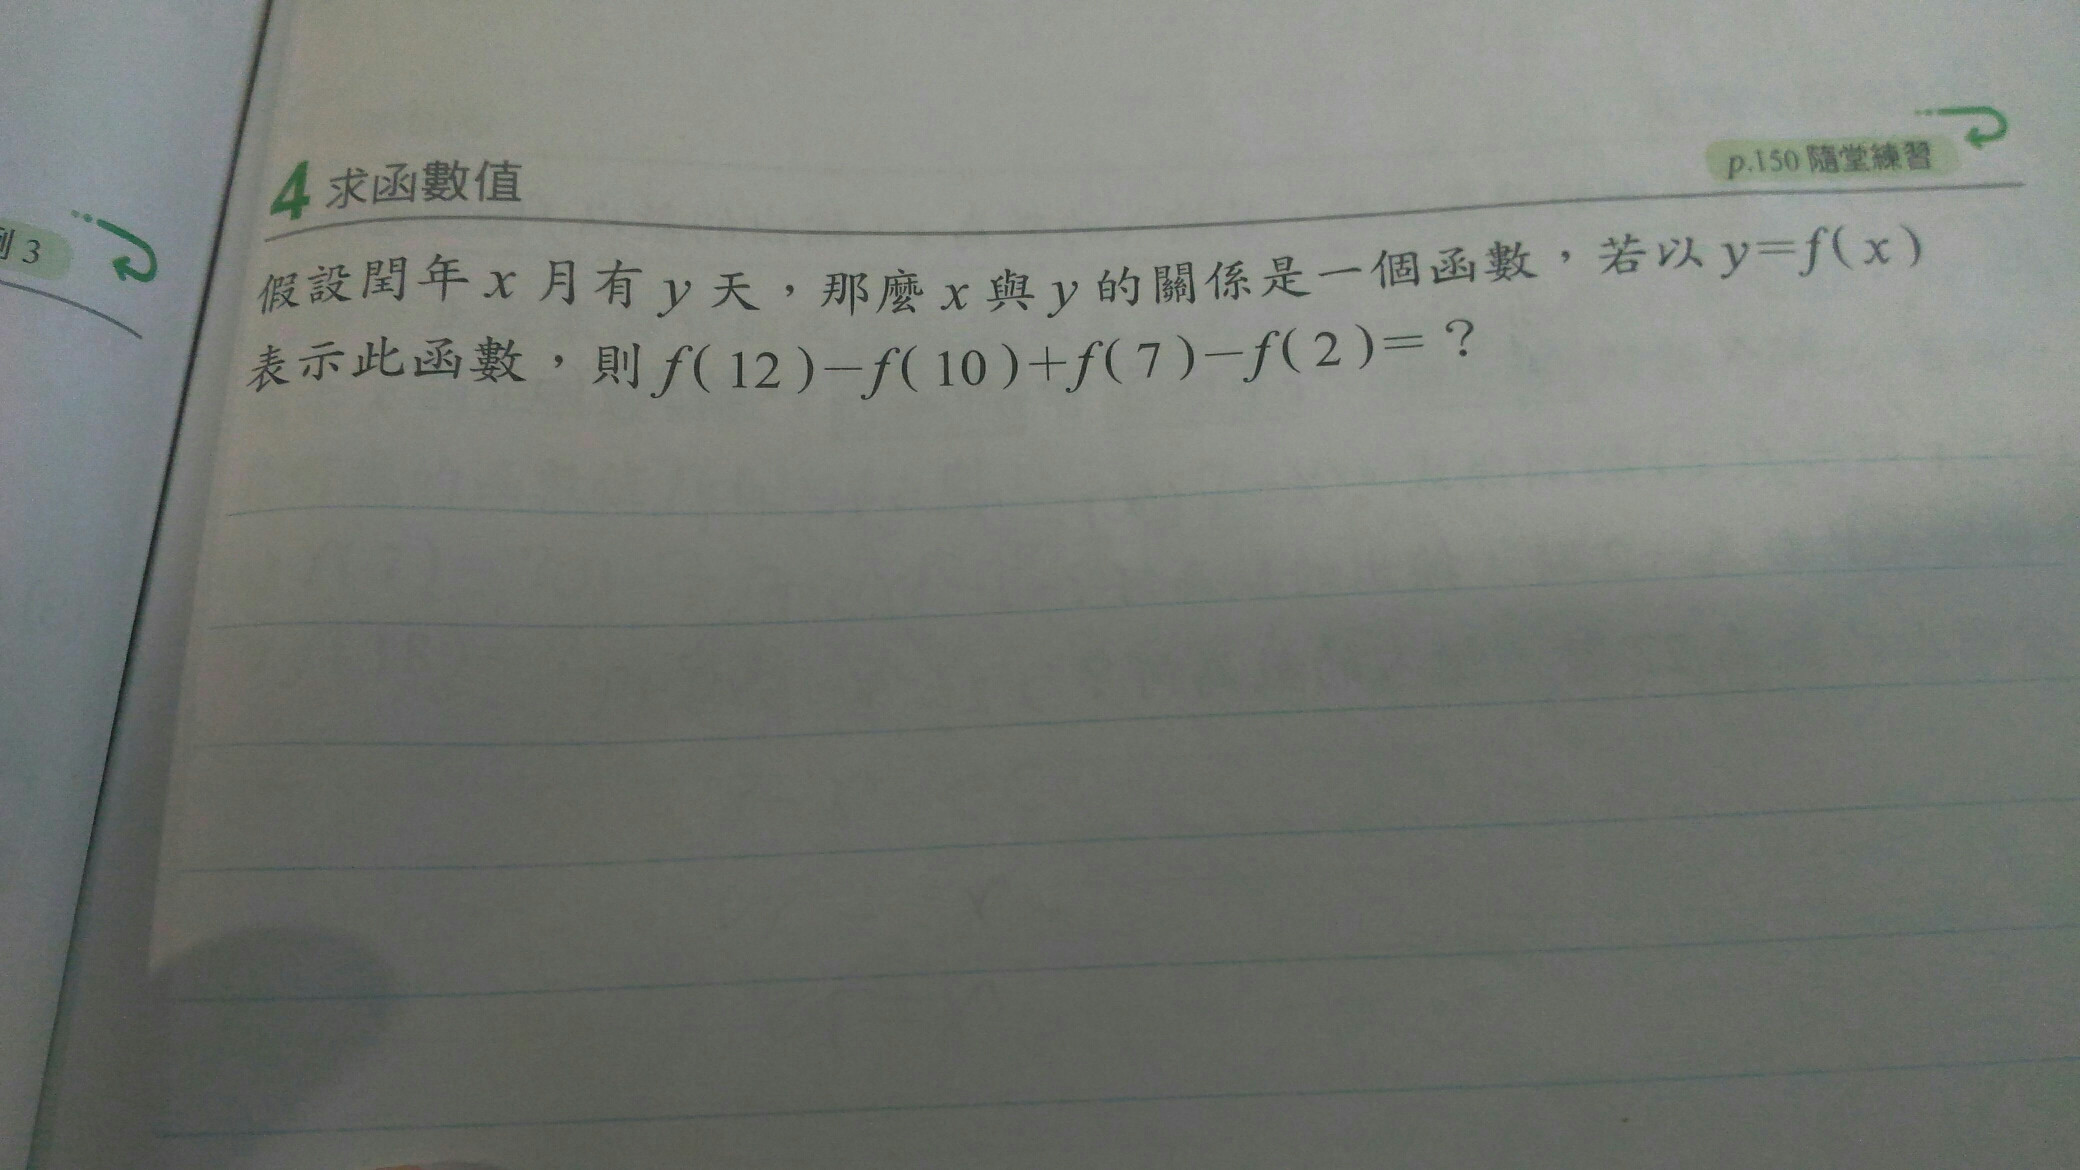 p.150 隨堂練習
4 求函數值
3
假設閏年 x 月有 y 天，那麼 x 與 y 的關係是一個函數，若以 y=f( x )
表示此函數，則 f( 12 )−f( 10 )+f( 7 )−f( 2 )=？